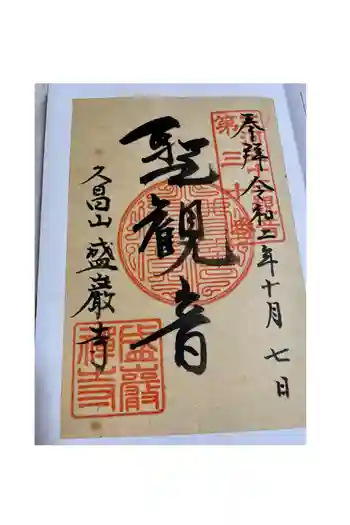 奉拝 令和二年十月七日
聖観音
久昌山 盛巌寺
盛巖禅寺